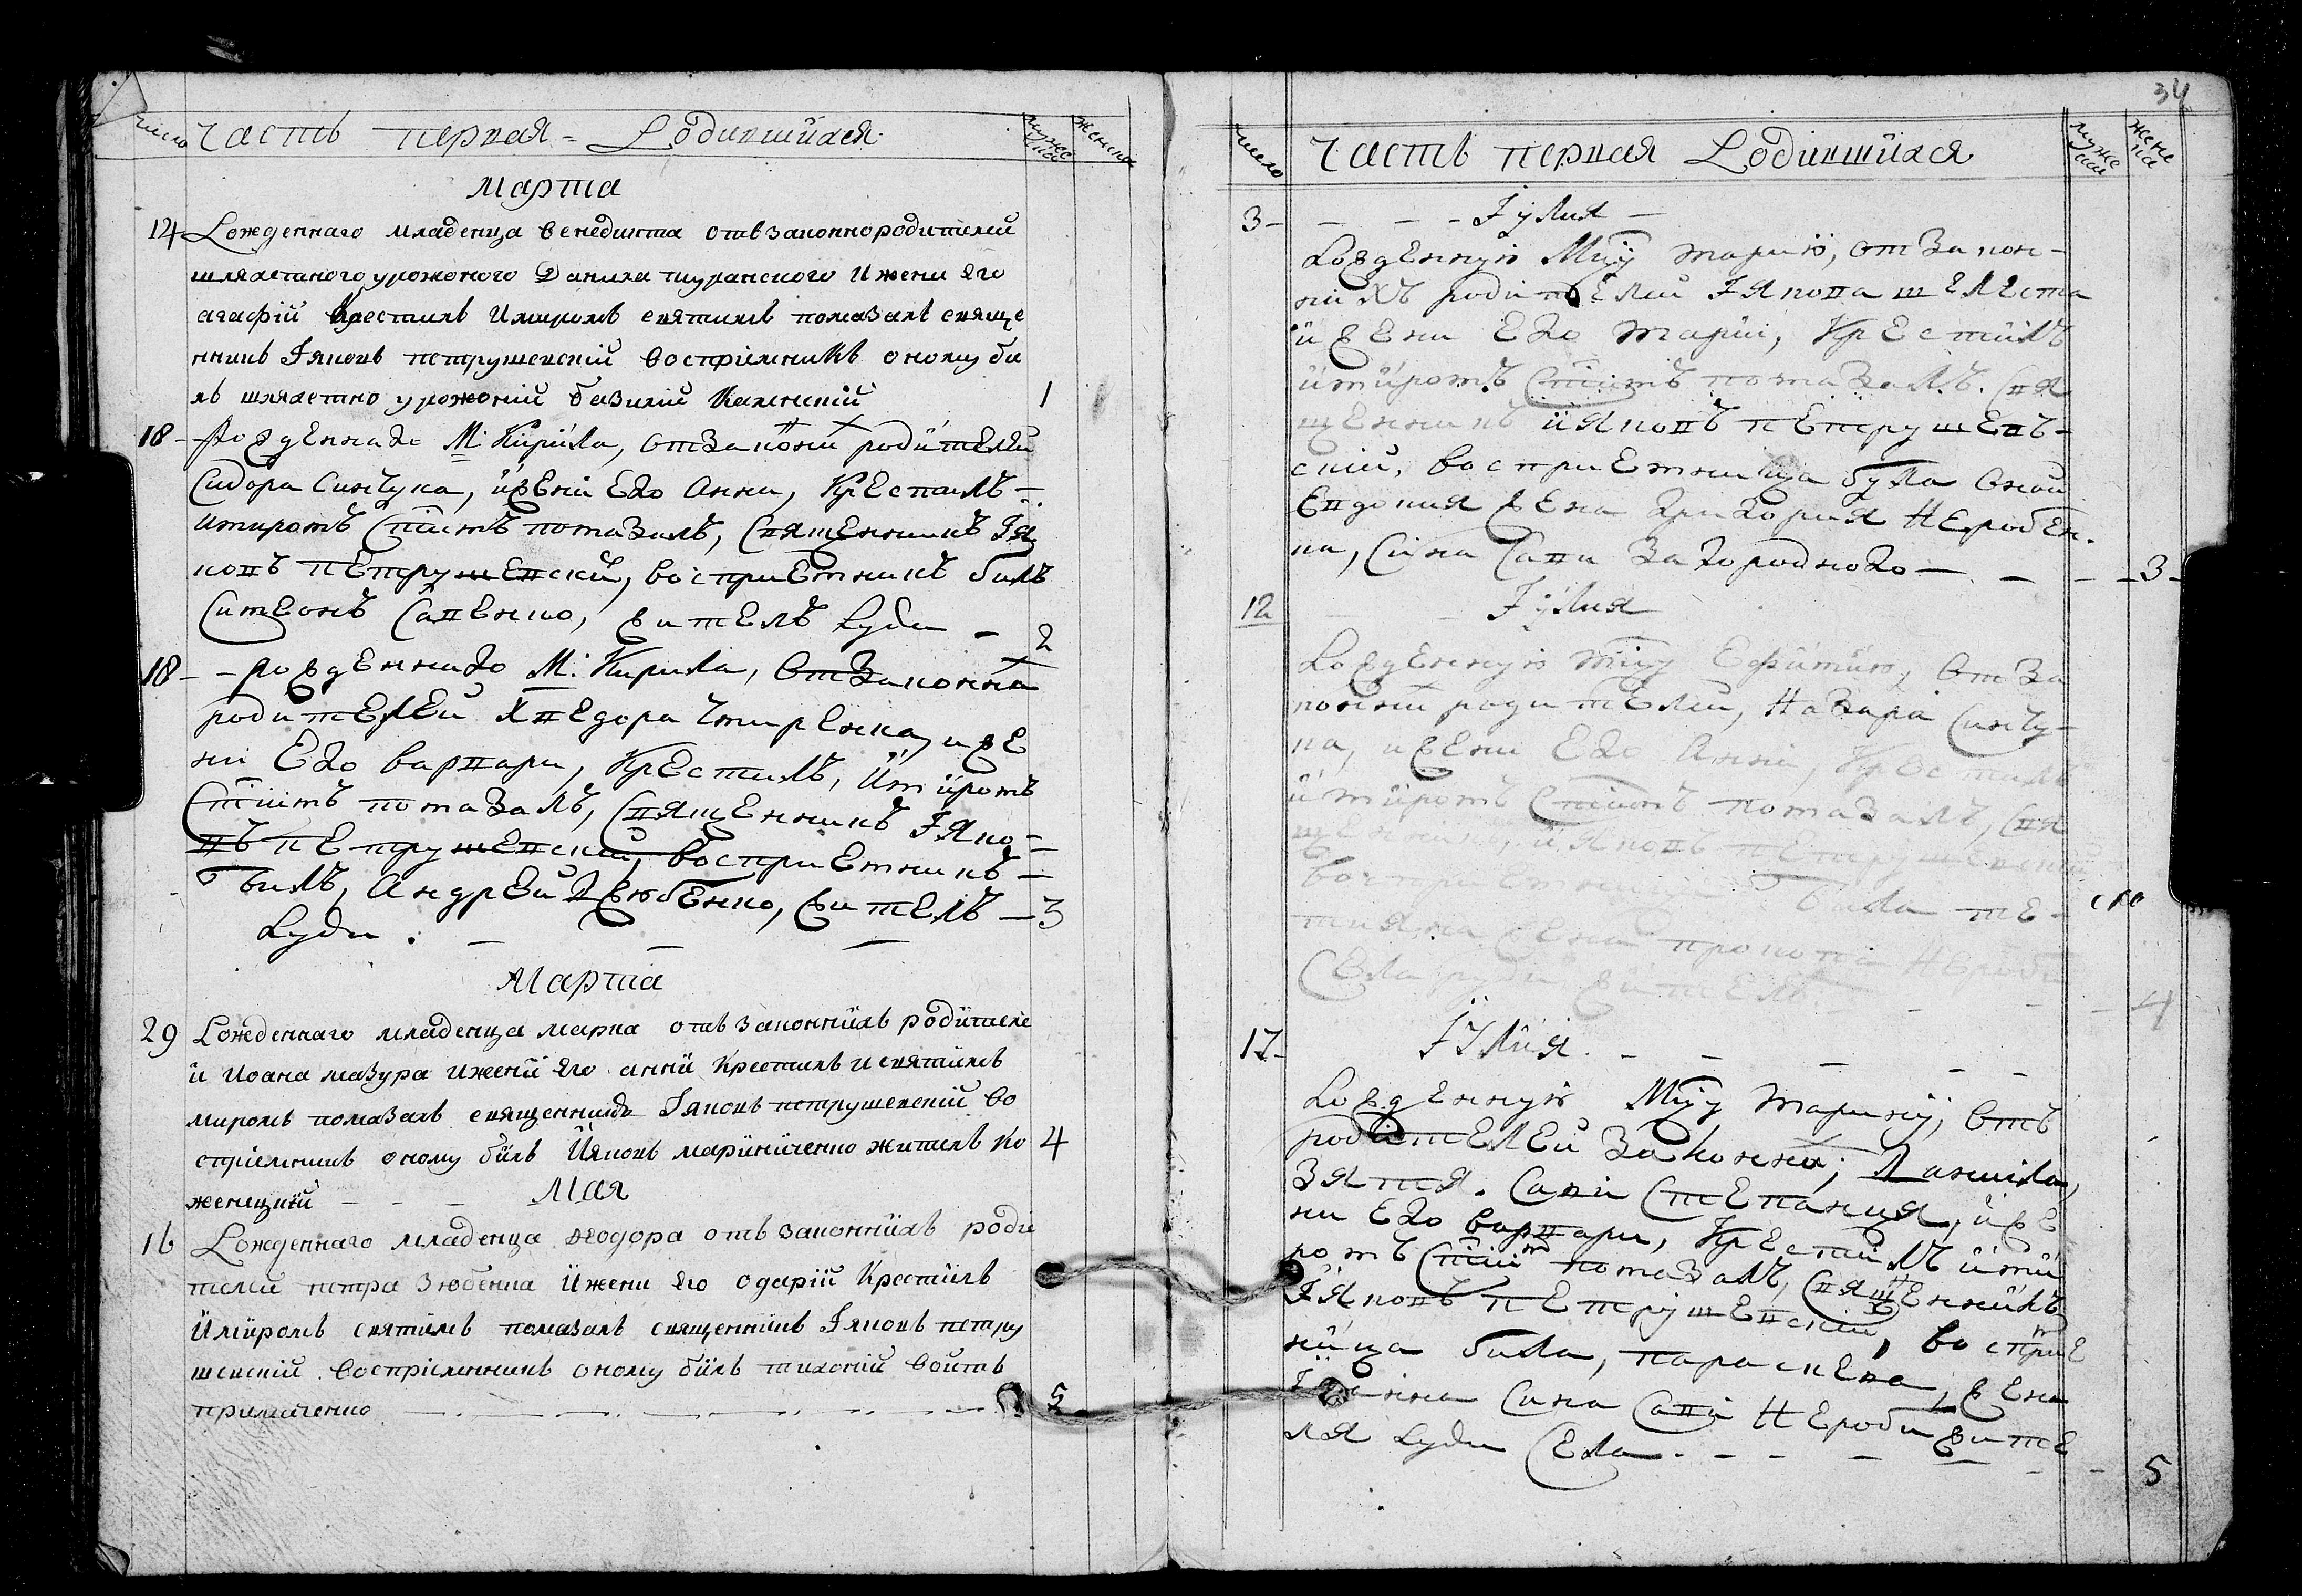 число Часть первая - Родившиися мужеска женска
Марта
14 Рожденнаго младенца венедикта отъ законнородителей
шляхетного урожоного Данила турянского и жени Его
агафiй Крестилъ и миромъ святимъ помазалъ свяще
нникъ Iяковъ петрушевскiй воспрiемникъ оному би
лъ шляхетно урожонiй базилiй 1
18 рожденнаго М: Кирiила, от законних родителей
Сидора Синчука, и жени Его Анни, Крестилъ
и миромъ Стимъ помазалъ, Священникъ Iя
ковъ пЕтрушЕвскй, воспрiЕмникъ билъ
Симеонъ Савенко, житель Руди - 2
18 - рожденнаго М: Кирила, от законних
родитЕлЕй Хведора ЧмирЕнка, и жЕ
ни Его варвари, КрЕстилъ, и миромъ
Стимъ помазалъ, СвящЕнникъ Iяко-
въ пЕтрушЕвскiй, воспрiЕмникъ -
билъ, АндрЕй ЗюбЕнко, житЕлъ - 3
Руди . - - -
Марта
29 Рожденнаго младенца марка отъ законнихъ родителе
й иоана мазура и женй Его аннй Крестилъ и святимъ
миромъ помазалъ священникъ Iяковъ петрушевскiй во
спрiемникъ оному билъ Йяковъ мариниченко житель ко 4
женщкой - - -
Мая
16 Рожденнаго младенца хеодора отъ законнихъ роди
телей петра Зюбенка и жени Его одарiй Крестилъ
и миромъ святимъ помазалъ священникъ Iяковъ петру
шевскiй воспрiемникъ оному билъ тихонiй войтъ
5
34
число Часть первая Родившиися мужеска женска
3 - - - - Iулия -
Рожденную Мцу марию, от закон-
нихъ родитЕлЕй Iякова шЕлЕста
и жени Его марiи, КрЕстилъ
и миромъ Стимъ помазалъ. Свя
щЕнникъ ияковъ пЕтрушЕвъ-
скiй, воспрiЕмница була оной
Евдокия жЕна григория НЕробЕн-
ка, Сина Сави Загородного - - - 3 -
12 Iулия
Рожденную мцу Ефимию, от за
конних родитЕлЕй, Назара Синчу-
ка, и жени Его Аннi, КрЕстилъ
и миромъ Стимъ помазалъ, Свя
щЕнникъ, ияковъ пЕтрушЕвскiй
воспрiЕмница била
жЕна прокопа
СЕла руди житЕлъ. - - 4
17 - Iулия. - - - - -
Рожденную Мцу марину, Отъ
родитЕлЕй законних, Данила,
зятя. Савi СтЕпания, и жЕ
ни Его варвари, КрЕстилъ и ми
ромъ Стим помазалъ, СвящЕнникъ
Iяковъ пЕтрушЕвскiй, воспрiЕм
ница била, параскЕва, жЕна
Сина Савi НЕроби житЕ
ля Руди СЕла - - - - - - - 5